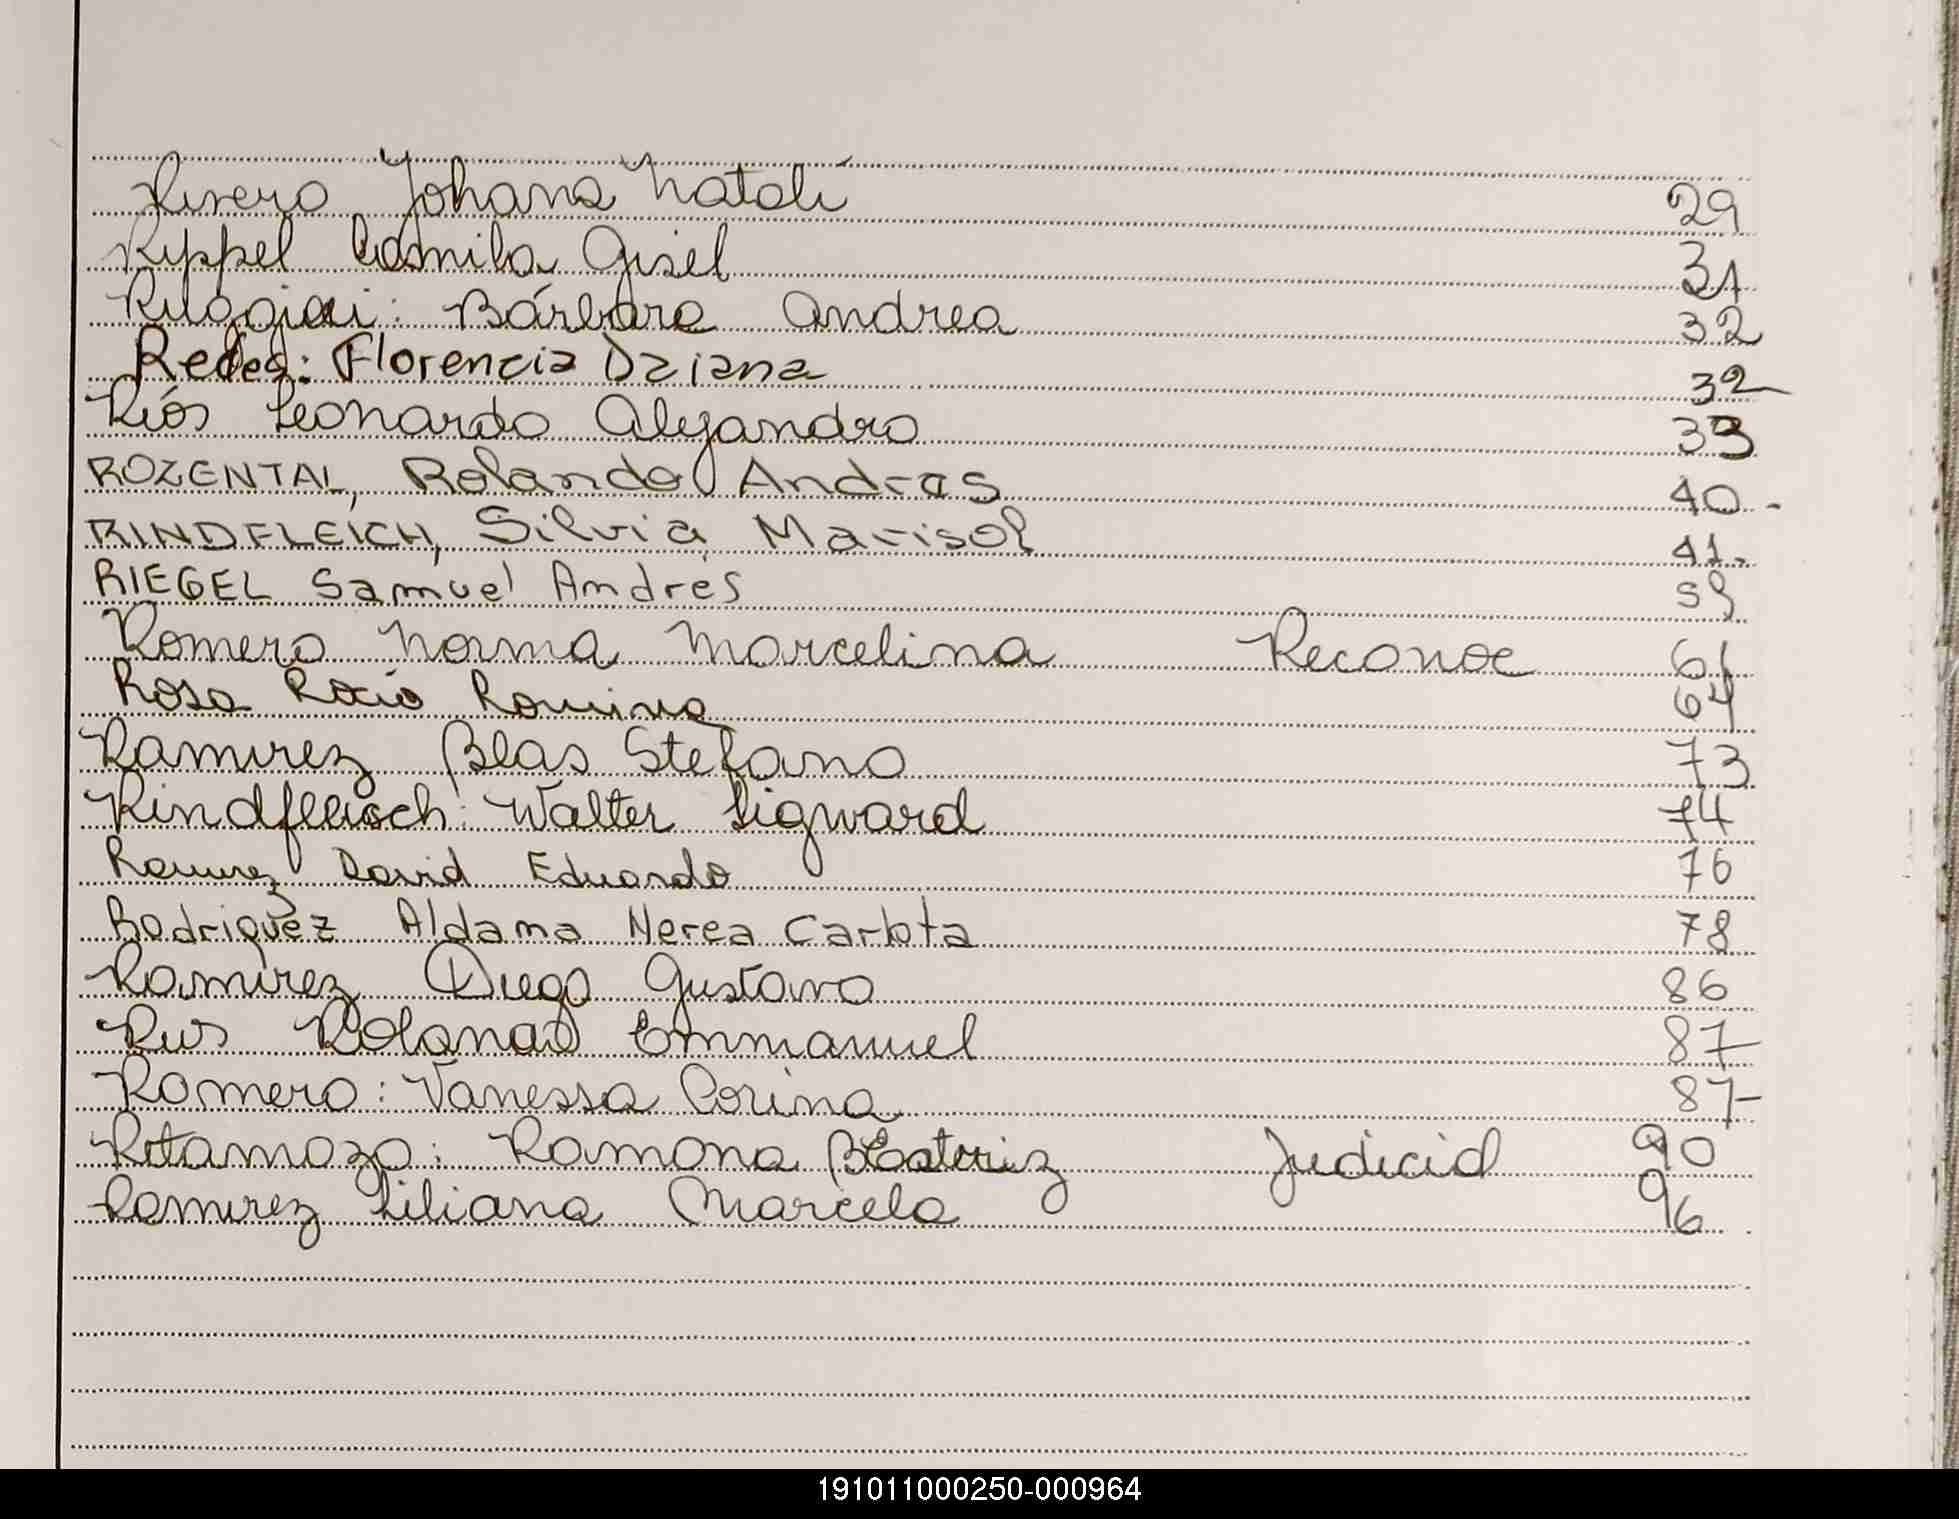 Rivero Johana Natalí 29
Rippel Camila Gisel 31
Ruggieri: Bárbara Andrea 32
Redes: Florencia Daiana 32
Riós Leonardo Alejandro 33
ROZENTAL, Rolando Andras 40-
RINDFLEICH, Silvia Marisol 41-
RIEGEL Samuel Andrés 59
Romero Norma Marcelina Reconoc 61
Rosa Rocio Romina 64
Ramirez Blas Stefano 73
Rindfleisch: Walter Sigward 74
Ramirez David Eduardo 76
Rodriguez Aldama Nerea Carlota 78
Ramirez Diego Gustavo 86
Emmanuel 87
Romero: Vanessa Corina 87
Retamozo: Ramona Beatriz Judicial 90
Ramirez Liliana Marcela 96
191011000250-000964